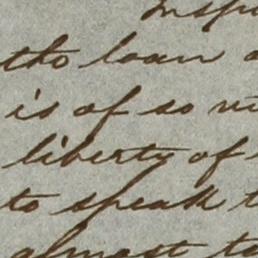 the loan
is of so
liberty of
to speak
almost to